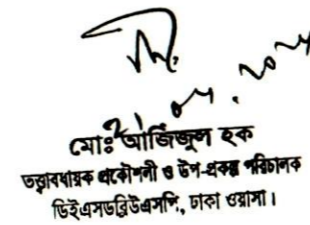 মোঃ আজিজুল হক
তত্ত্বাবধায়ক প্রকৌশলী ও উপ-প্রকল্প পরিচালক
ডিইএসডব্লিউএসপি, ঢাকা ওয়াসা।